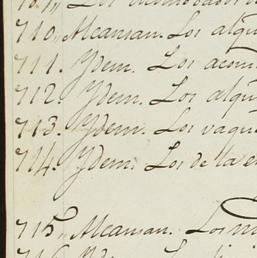 710,, Alcansan. Los alqu
711. Ydem. Los acom
712. Ydem. Los alqu
713. Ydem. Los vaque
714. Ydem. Los de la e
715,, Alcansan. Los